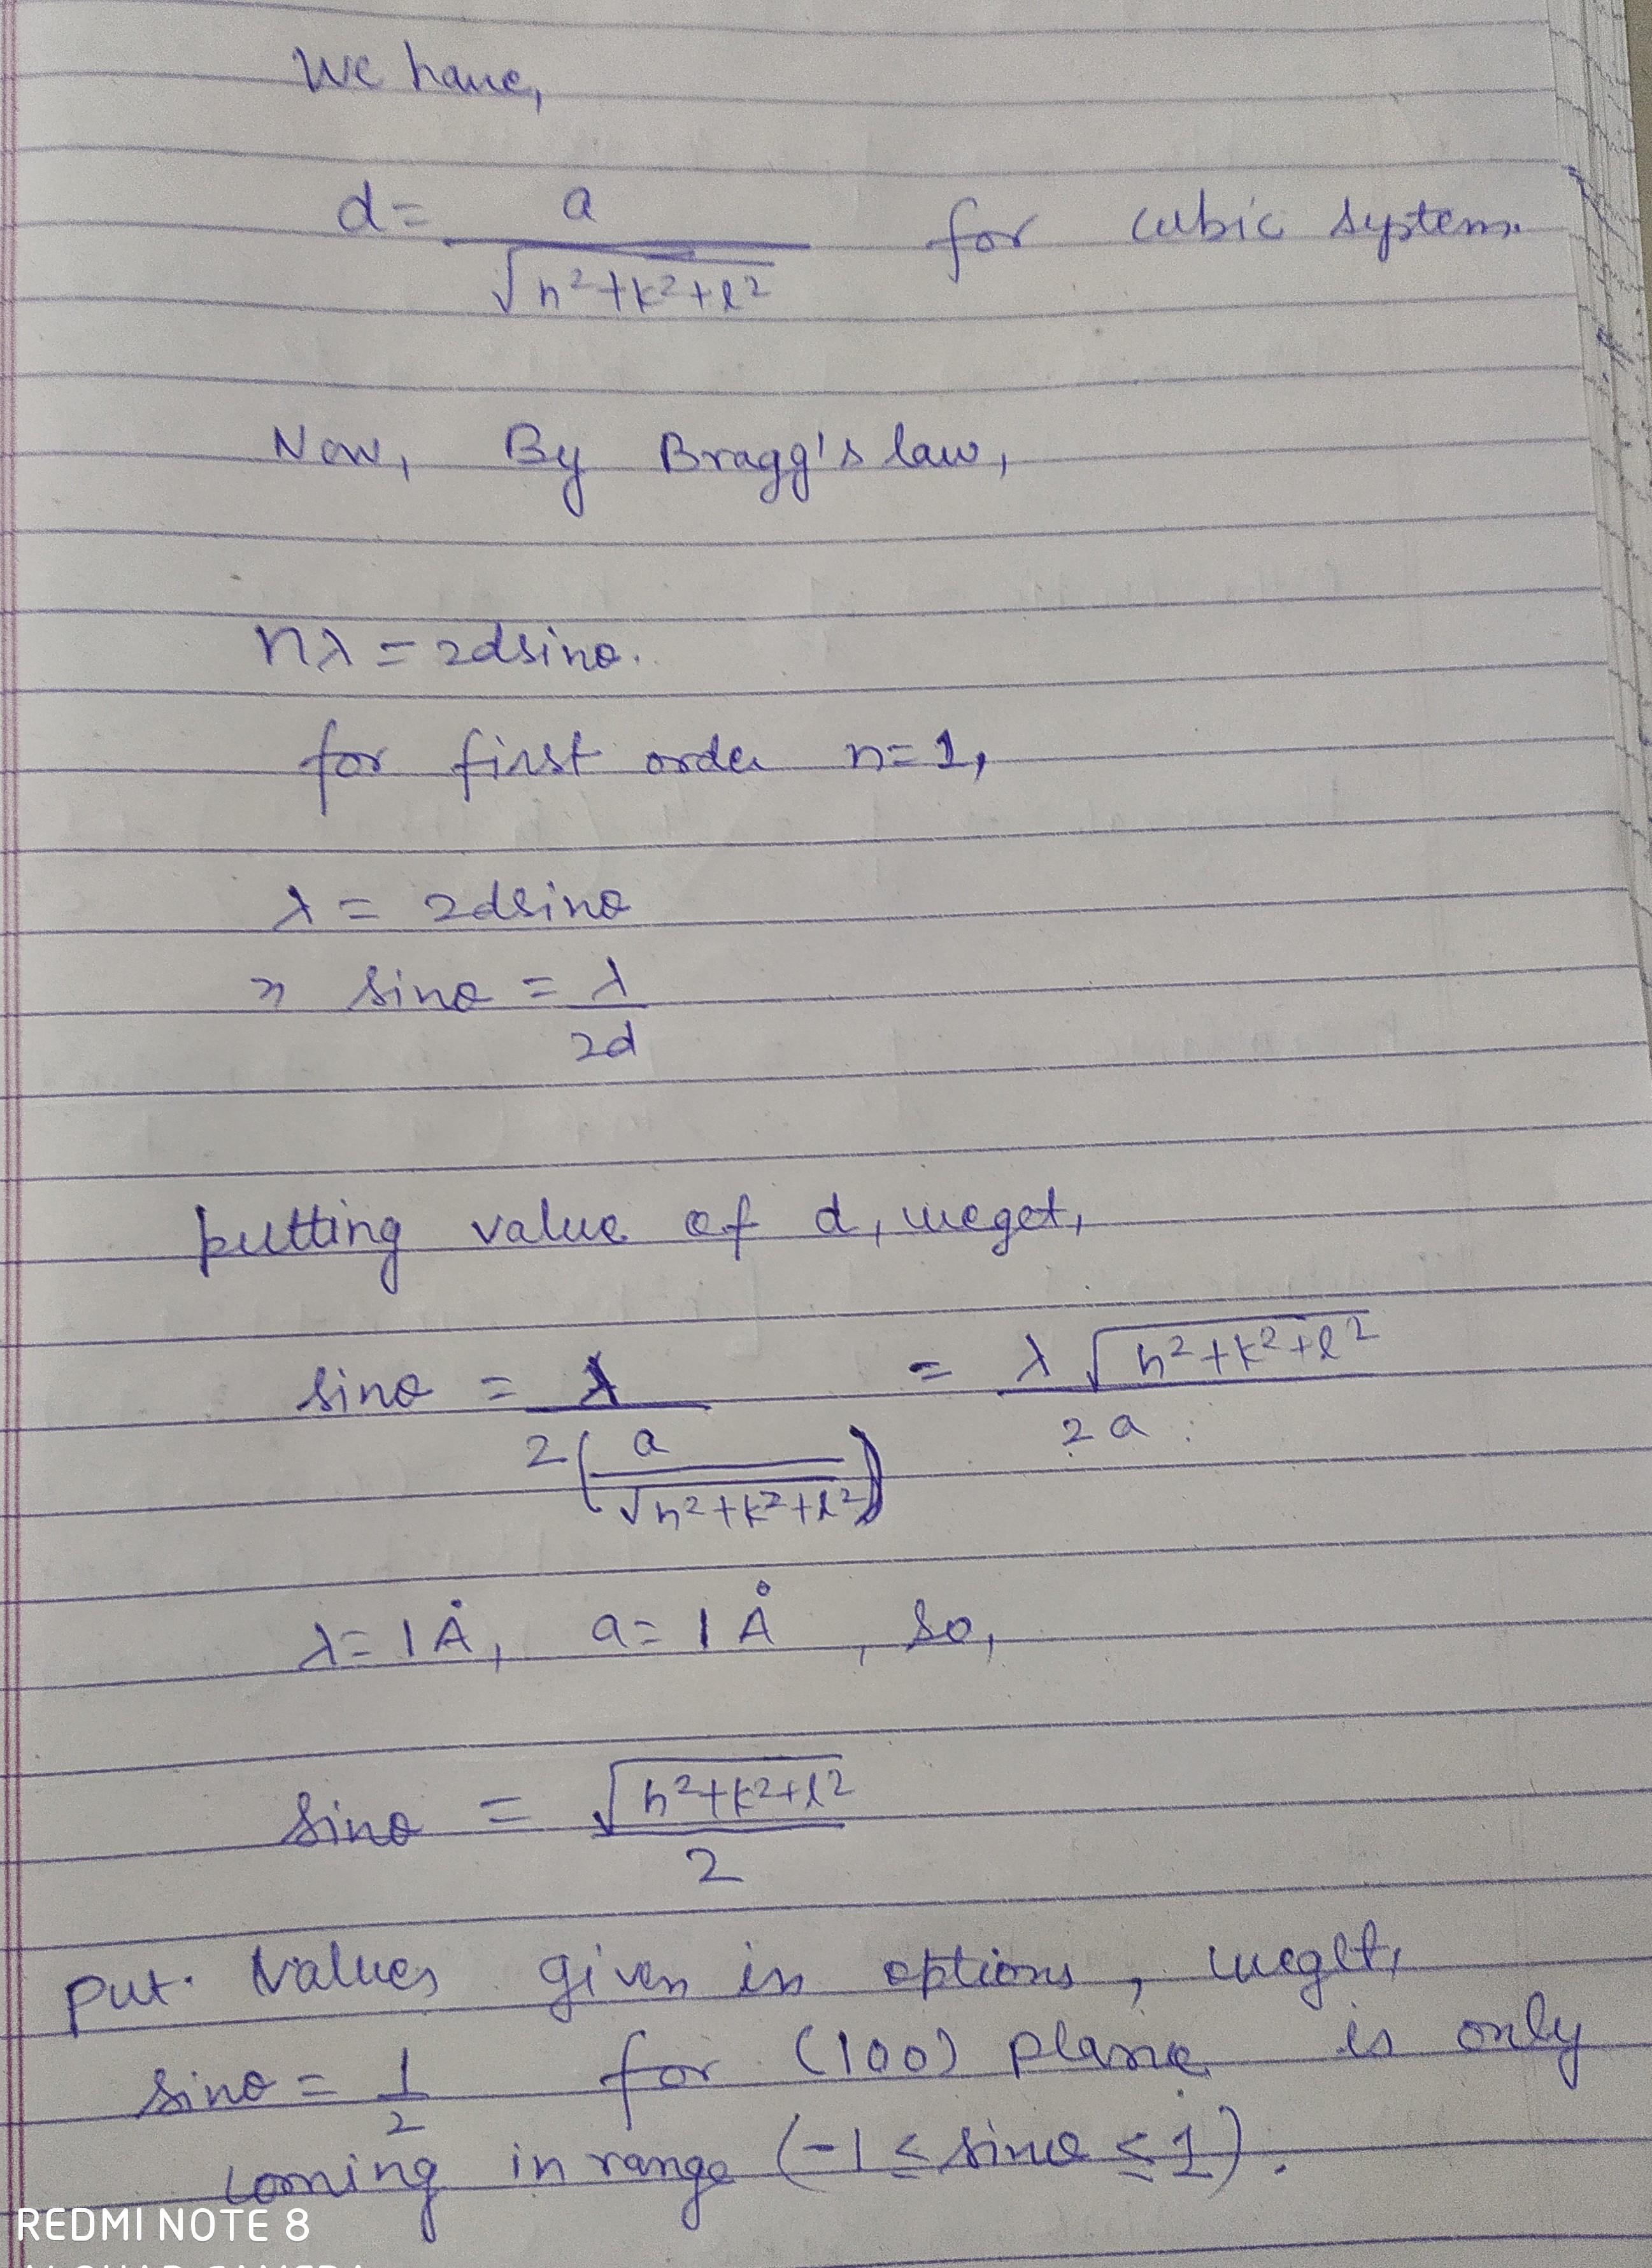 We have,
d = a / √h²+k²+l² for cubic system.
Now, By Bragg's law,
nλ = 2dsinθ.
for first order n=1,
λ = 2dsinθ
sinθ = λ / 2d
putting value of d, we get,
sinθ = λ / 2(a / √h²+k²+l²) = λ √h²+k²+l² / 2a
λ = 1 Å, a = 1 Å, so,
sinθ = √h²+k²+l² / 2
Put values given in options, we get,
sinθ = 1/2 for (100) plane is only
coming in range (-1 ≤ sinθ ≤ 1).
REDMI NOTE 8